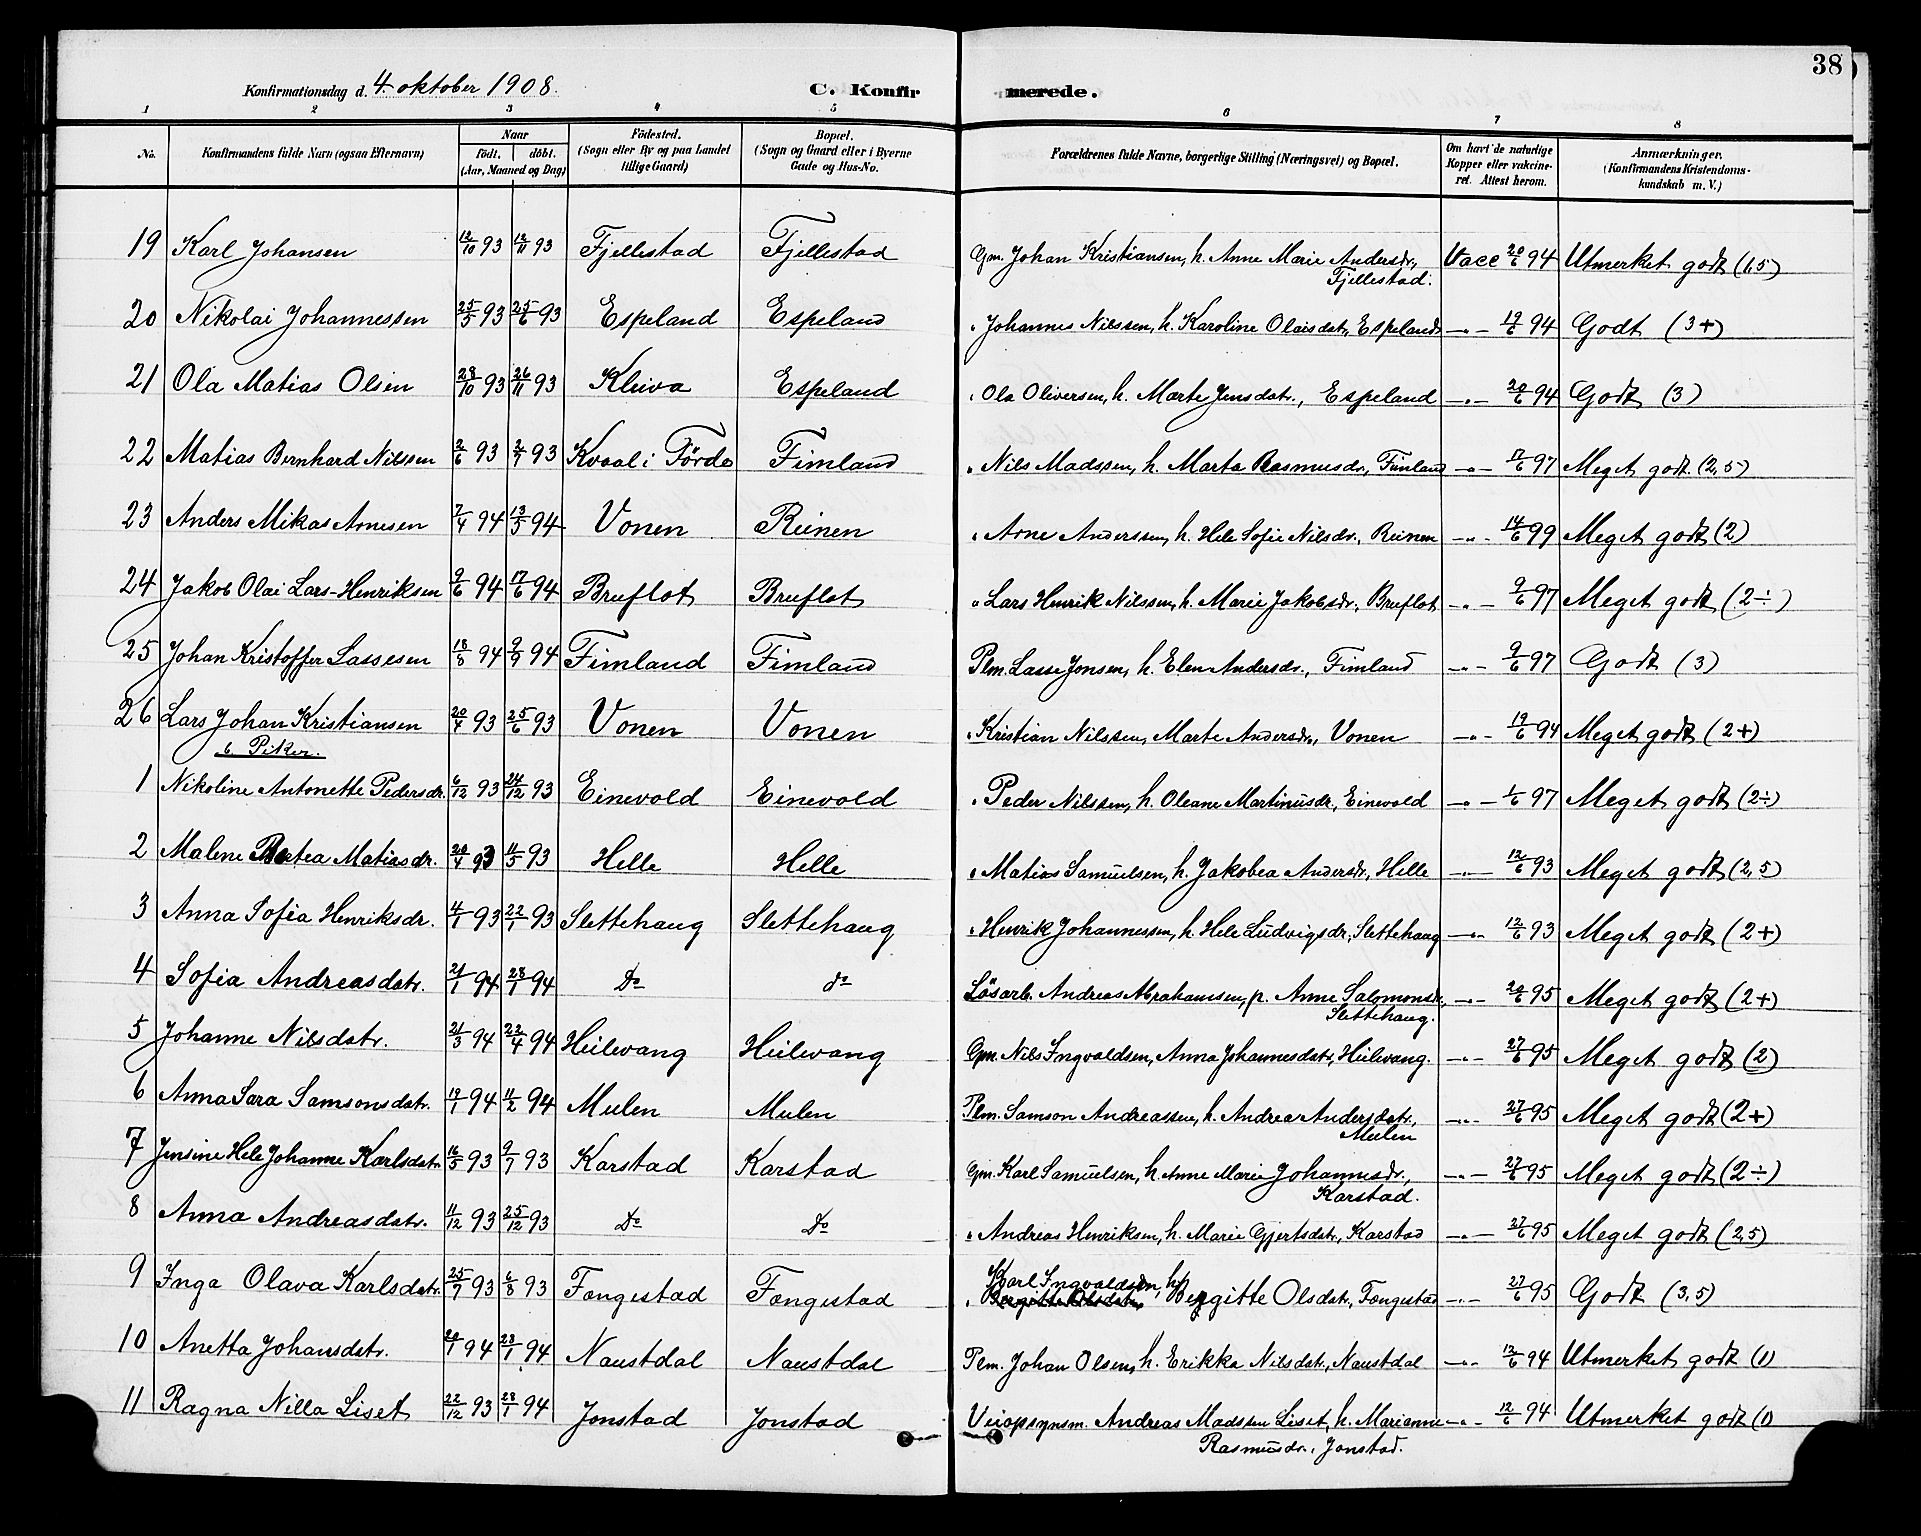 38
Konfirmationsdag d. 4 oktober 1908.
C. Konfirmerede.
1 2 3 4 5 6 7 8
No. Konfirmandens fulde Navn (ogsaa Efternavn) Naar født. døbt. (Aar, Maaned og Dag) Fødested. (Sogn eller By og paa Landet tillige Gaard) Bopæl. (Sogn og Gaard eller i Byerne Gade og Hus-No. Forældrenes fulde Navne, borgerlige Stilling (Næringsvei) og Bopæl. Om havt de naturlige Kopper eller vakcineret. Attest herom. Anmærkninger. (Konfirmandens Kristendomskundskab m. V.)
19 Karl Johansen 12/10 93 12/11 93 Fjellestad Fjellestad Gm. Johan Kristiansen, h. Anne Marie Andersdr., Vacc 20/6 94 Utmerket godt (1,5)
Fjellestad.
20 Nikolai Johannessen 25/5 93 25/6 93 Espeland Espeland " Johannes Nilssen, h. Karoline Olaisdatr, Espeland —"— 19/6 94 Godt (3+)
21 Ola Matias Olsen 28/10 93 26/11 93 Kleiva Espeland " Ola Oliversen, h. Marte Jensdatr., Espeland —"— 20/6 94 Godt (3)
22 Matias Bernhard Nilssen 2/6 93 2/7 93 Kvaal i Førde Fimland " Nils Madssen, h. Marta Rasmusdr., Fimland —"— 17/6 97 Meget godt (2,5)
23 Anders Mikas Arnesen 7/4 94 13/5 94 Vonen Reinen " Arne Anderssen, h. Hele Sofie Nilsdr., Reinen —"— 14/6 99 Meget godt (2)
24 Jakob Olai Lars-Henriksen 9/6 94 17/6 94 Bruflot Bruflot " Lars Henrik Nilssen, h. Marie Jakobsdr., Bruflot —"— 9/6 97 Meget godt (2÷)
25 Johan Kristoffer Lassesen 18/8 94 9/9 94 Fimland Fimland Plm. Lasse Jonsen, h. Elen Andersdr., Fimland —"— 9/6 97 Godt (3)
26 Lars Johan Kristiansen 20/4 93 25/6 93 Vonen Vonen " Kristian Nilssen, Marte Andersdr., Vonen —"— 19/6 94 Meget godt (2+)
b Piker.
1 Nikoline Antonette Pedersdr. 6/12 93 24/12 93 Einevold Einevold " Peder Nilssen, h. Oleane Martinusdr., Einevold —"— 1/6 97 Meget godt (2÷)
2 Malene Matiasdr. 20/4 93 11/5 93 Helle Helle " Matias Samuelsen, h. Jakobea Andersdr, Helle —"— 12/6 93 Meget godt (2,5)
3 Anna Sofia Henriksdr. 4/1 93 22/1 93 Slettehaug Slettehaug " Henrik Johannessen, h. Hele Ludvigsdr, Slettehaug —"— 12/6 93 Meget godt (2+)
4 Sofia Andreasdatr. 21/1 94 28/1 94 Do do Løsarb. Andreas Abrahamsen, p. Anne Salomonsdr, —"— 20/6 95 Meget godt (2+)
Slettehaug.
5 Johanne Nilsdatr. 21/3 94 22/4 94 Heilevang Heilevang Gm. Nils Ingvaldsen, Anna Johannesdatr, Heilevang. —"— 27/6 95 Meget godt (2)
6 Anna Sara Samsonsdatr. 19/1 94 11/2 94 Mulen Mulen Plm. Samson Andreassen, h. Andrea Andersdatr., —"— 27/6 95 Meget godt (2+)
Mulen
7 Jensine Hele Johanne Karlsdatr 16/5 93 9/7 93 Karstad Karstad Gm. Karl Samuelsen, h. Anne Marie Johannesdr., —"— 27/6 95 Meget godt (2÷)
Karstad.
8 Anna Andreasdatr. 11/12 93 25/12 93 Do Do " Andreas Henriksen, h. Marie Gjertsdatr., Karstad —"— 27/6 95 Meget godt (2,5)
9 Inga Olava Karlsdatr 25/7 93 6/8 93 Fongestad Fongestad " Karl Ingvaldsen, h. Bergitte Olsdatr., Fongestad —"— 27/6 95 Godt (3,5)
10 Anetta Johansdatr. 20/1 94 28/1 94 Naustdal Naustdal Plm. Johan Olsen, h. Erikka Nilsdatr., Naustdal —"— 12/6 94 Utmerket godt (1)
11 Ragna Nilla Liset 22/12 93 28/1 94 Jonstad Jonstad Veiopsynsm. Andreas Madssen Liset, h. Marianne —"— 12/6 94 Utmerket godt (1)
Rasmusdr., Jonstad.